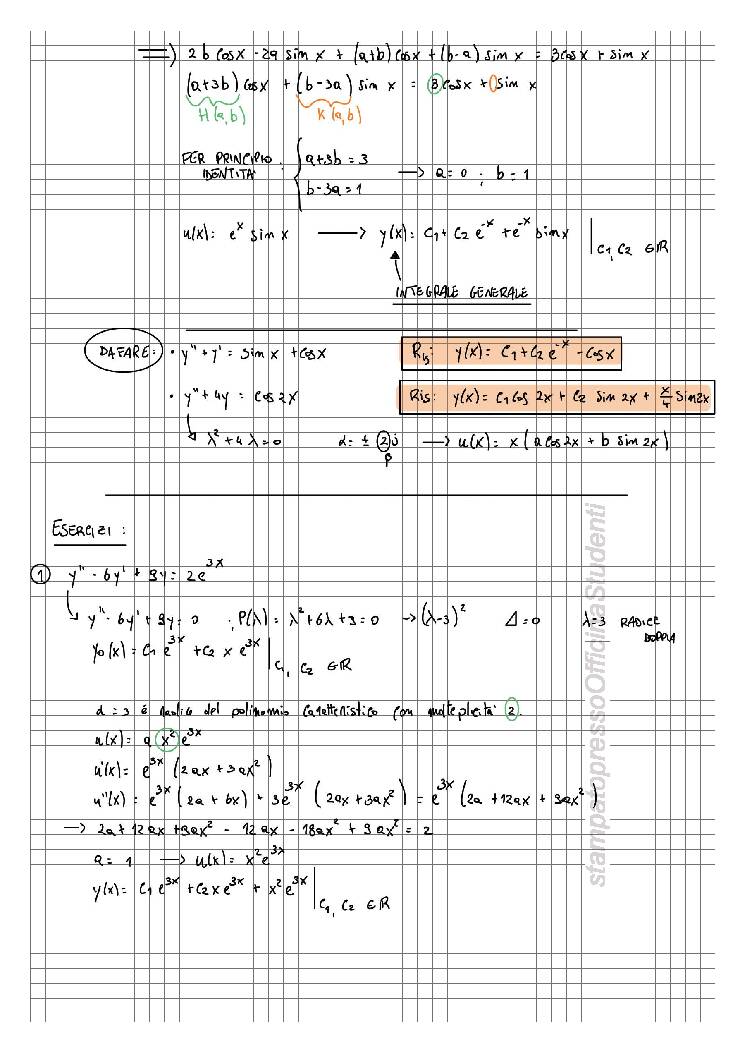 ⟹) 2b cosx - 2a sin x + (a+b) cosx + (b-a) sin x = 3cosx + sin x
(a+3b) cosx + (b-3a) sin x = 3cosx + 1sin x
H(a,b) K(a,b)
PER PRINCIPIO IDENTITÀ : { a+3b = 3
b-3a = 1 → a=0 ; b=1
u(x) = e^x sin x → y(x) = C1 + C2 e^-x + e^-x sin x | C1, C2 ∈ℝ
INTEGRALE GENERALE
DA FARE: • y'' + y' = sin x + cosx Ris: y(x) = C1 + C2 e^-x - cosx
• y'' + 4y = cos 2x Ris: y(x) = C1 cos 2x + C2 sin 2x + x/4 sin2x
↳ λ² + 4λ = 0 α = ± 2i → u(x) = x (a cos2x + b sin 2x)
β
ESERCIZI :
① y'' - 6y' + 9y = 2e^3x
↳ y'' - 6y' + 9y = 0 ; P(λ) = λ² + 6λ + 9 = 0 → (λ-3)² Δ = 0 λ=3 RADICE DOPPIA
y0(x) = C1 e^3x + C2 x e^3x | C1, C2 ∈ℝ
α = 3 è radice del polinomio caratteristico con molteplicità 2.
u(x) = a x² e^3x
u'(x) = e^3x (2ax + 3ax²)
u''(x) = e^3x (2a + 6x) + 3e^3x (2ax + 3ax²) = e^3x (2a + 12ax + 9ax²)
→ 2a + 12ax + 9ax² - 12ax - 18ax² + 9ax² = 2
a = 1 → u(x) = x² e^3x
y(x) = C1 e^3x + C2 x e^3x + x² e^3x | C1, C2 ∈ℝ
stampatopressoOfficinaStudenti